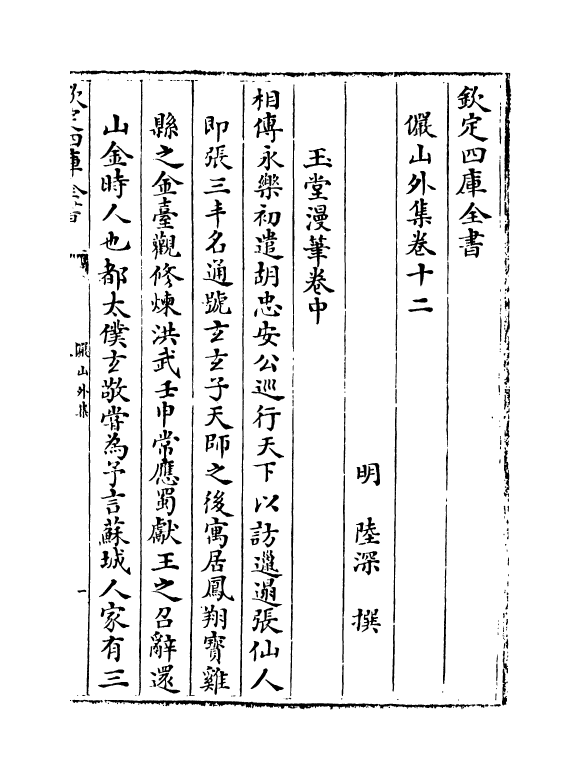 欽定四庫全書
儼山外集卷十二
明 陸深 撰
玉堂漫筆卷中
相傳永樂初遣胡忠安公巡行天下以訪邋遢張仙人
即張三丰名通號玄玄子天師之後寓居鳳翔寳雞
縣之金臺觀修煉洪武壬申常應蜀獻王之召辭還
山金時人也都太僕玄敬嘗為予言蘇城人家有三
欽定四庫全書
儼山外集
一